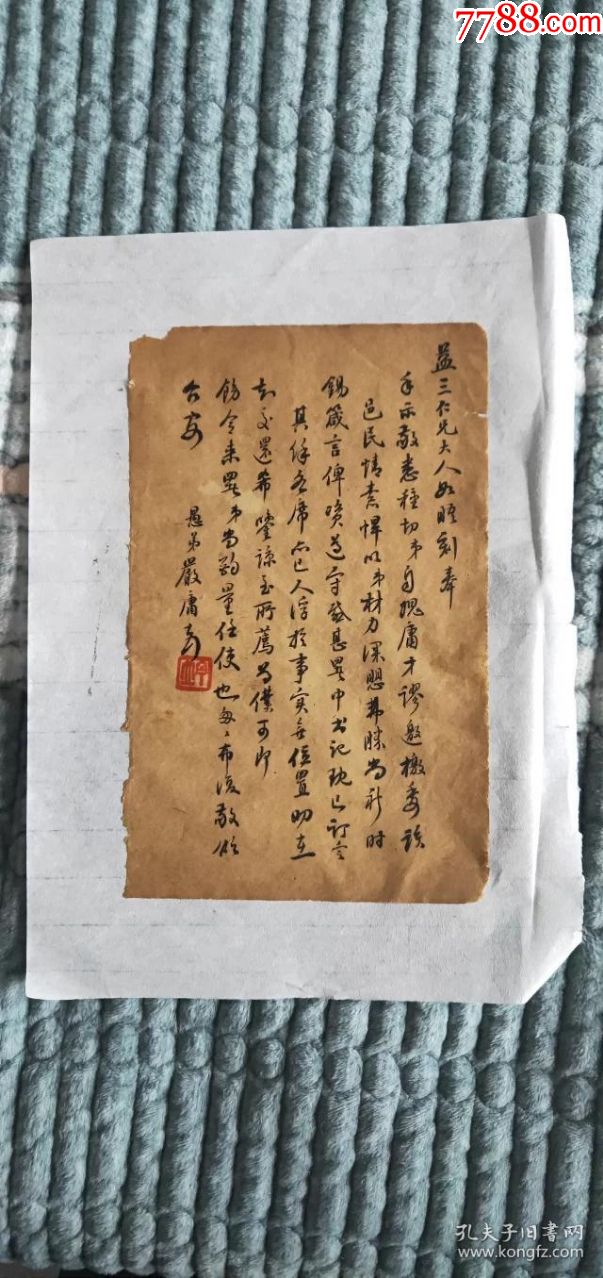 7788.com
益三仁兄大人如晤刻奉
手示敬悉種切弟自愧庸才謬邀檄委該
邑民情素悍以弟材力深恐弗勝尚祈時
錫箴言俾資遵守感甚署中书記現已訂定
其餘各席亦已人浮於事實無位置昭在
知交還希鑒諒至所薦为僕可即
飭令来署弟當酌量任使也匆、布復敬頌
台安
愚弟嚴庸
孔夫子旧書网
www.kongfz.com